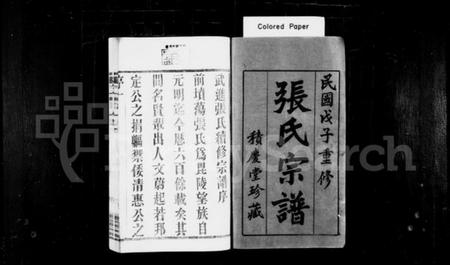 Colored Paper
民國戊子重修
張氏宗譜
積慶堂珍藏
武進張氏續修宗譜序
前墳蕩張氏為毘陵望族自
元明迄今歷六百餘載矣其
間名賢輩出人文蔚起若邦
定公之捐軀禦倭清惠公之